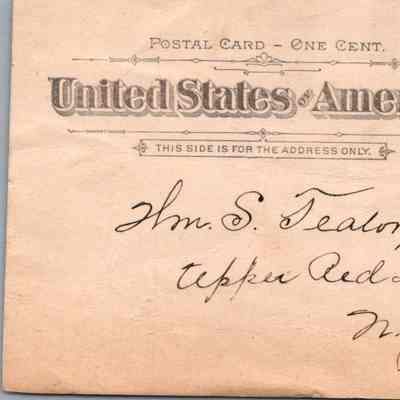 POSTAL CARD - ONE CENT.
United States of Ame
THIS SIDE IS FOR THE ADDRESS ONLY.
Wm. S. Teator
Upper Red
N.